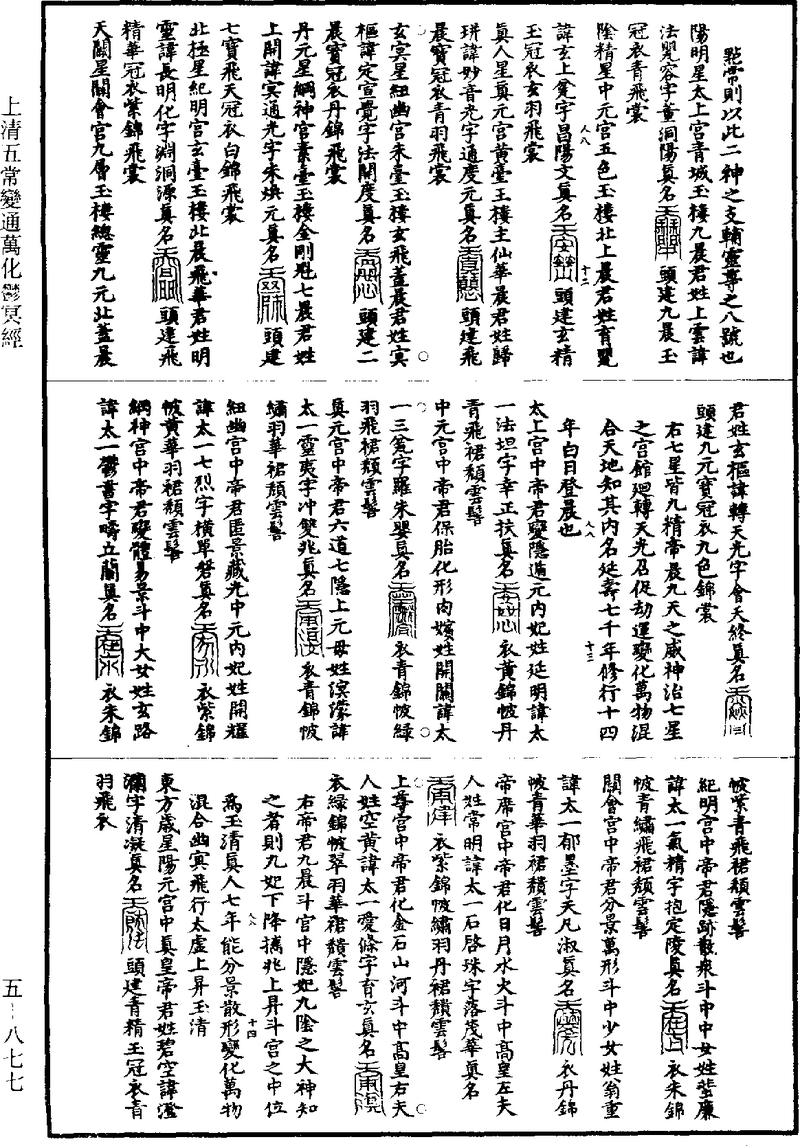 點常則以此二神之支輔靈尊之八號也
陽明星太上宮青城玉樓九晨君姓上雲諱
法嬰容字董洞陽真名 頭建九晨玉
冠衣青飛裳
陰精星中元宮五色玉樓北上晨君姓育嬰
諱玄上 字昌陽文真名 頭建玄精
八八 十二
玉冠衣玄羽飛裳
真人星真元宮黃臺玉樓主仙華晨君姓歸
諱妙音光字通度元真名 頭建飛
晨寶冠衣青羽飛裳
玄冥星紐幽宮朱臺玉樓玄飛蓋晨君姓冥
樞諱定宣覺字法開度真名 頭建二
晨寶冠衣丹錦飛裳
丹元星綱神宮素臺玉樓金剛尅七晨君姓
上開諱冥通光字朱煥元真名 頭建
七寶飛天冠衣白錦飛裳
北極星紀明宮玄臺玉樓北晨飛華君姓明
靈諱長明化字淵洞源真名 頭建飛
精華冠衣紫錦飛裳
天關星關會宮九層玉樓總靈九元北蓋晨
君姓玄樞諱轉天光字會天終真名
頭建九元寶冠衣九色錦裳
右七星皆九精帝晨九天之威神治七星
之宮館廻轉天光召促劫運變化萬物混
合天地知其內名延壽七千年修行十四
八八 十三
年白日登晨也
太上宮中帝君變隱遁元內妃姓延明諱太
一法坦字幸正扶真名 衣黃錦帔丹
青飛裙頹雲髻
中元宮中帝君保胎化形內嬪姓開闢諱太
一三 字羅朱嬰真名 衣青錦帔綠
羽飛裙頹雲髻
真元宮中帝君六道七隱上元母姓溟濛諱
太一靈夷字冲雙兆真名 衣青錦帔
繡羽華裙頹雲髻
紐幽宮中帝君匿景藏光中元內妃姓開耀
諱太一七烈字橫單磐真名 衣紫錦
帔黃華羽裙頹雲髻
綱神宮中帝君變體易景斗中大女姓玄路
諱太一鬱書字疇立蘭真名 衣朱錦
帔紫青飛裙頹雲髻
紀明宮中帝君隱跡散眾斗中中女姓 廉
諱太一氣精字抱定陵真名 衣朱錦
帔青繡飛裙頹雲髻
關會宮中帝君分景萬形斗中少女姓翁重
諱太一郁墨字天凡淑真名 衣丹錦
帔青華羽裙頹雲髻
帝席宮中帝君化日月水火斗中高皇左夫
人姓常明諱太一石啓珠字落茂華真名
衣紫錦帔繡羽丹裙頹雲髻
上尊宮中帝君化金石山河斗中高皇右夫
人姓空黃諱太一愛條字育玄真名
衣綠錦帔翠羽華裙頹雲髻
右帝君九晨斗宮中隱妃九陰之大神知
之者則九妃下降攜兆上昇斗宮之中位
為玉清真人七年能分景散形變化萬物
八八 十四
混合幽冥飛行太虛上昇玉清
東方歲星陽元宮中真皇帝君姓碧空諱澄
瀾字清凝真名 頭建青精玉冠衣青
羽飛衣
上清五常變通萬化鬱冥經
五-八七七